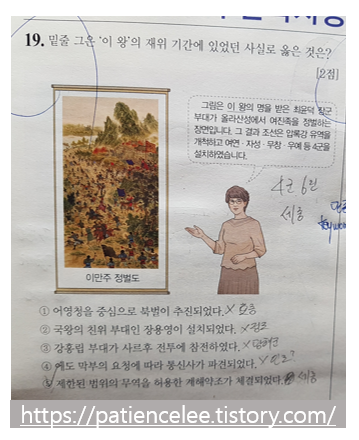 19. 밑줄 그은 '이 왕'의 재위 기간에 있었던 사실로 옳은 것은?
[2점]
그림은 이 왕의 명을 받은 최윤덕 장군
부대가 올라산성에서 여진족을 정벌하는
장면입니다. 그 결과 조선은 압록강 유역을
개척하고 여연·자성·무창·우예 등 4군을
설치하였습니다.
4군 6진
세종
이만주 정벌도
① 어영청을 중심으로 북벌이 추진되었다. X 효종
② 국왕의 친위 부대인 장용영이 설치되었다. X 정조
③ 강홍립 부대가 사르후 전투에 참전하였다. X 광해군
④ 에도 막부의 요청에 따라 통신사가 파견되었다. X
⑤ 제한된 범위의 무역을 허용한 계해약조가 체결되었다. 세종
https://patiencelee.tistory.com/